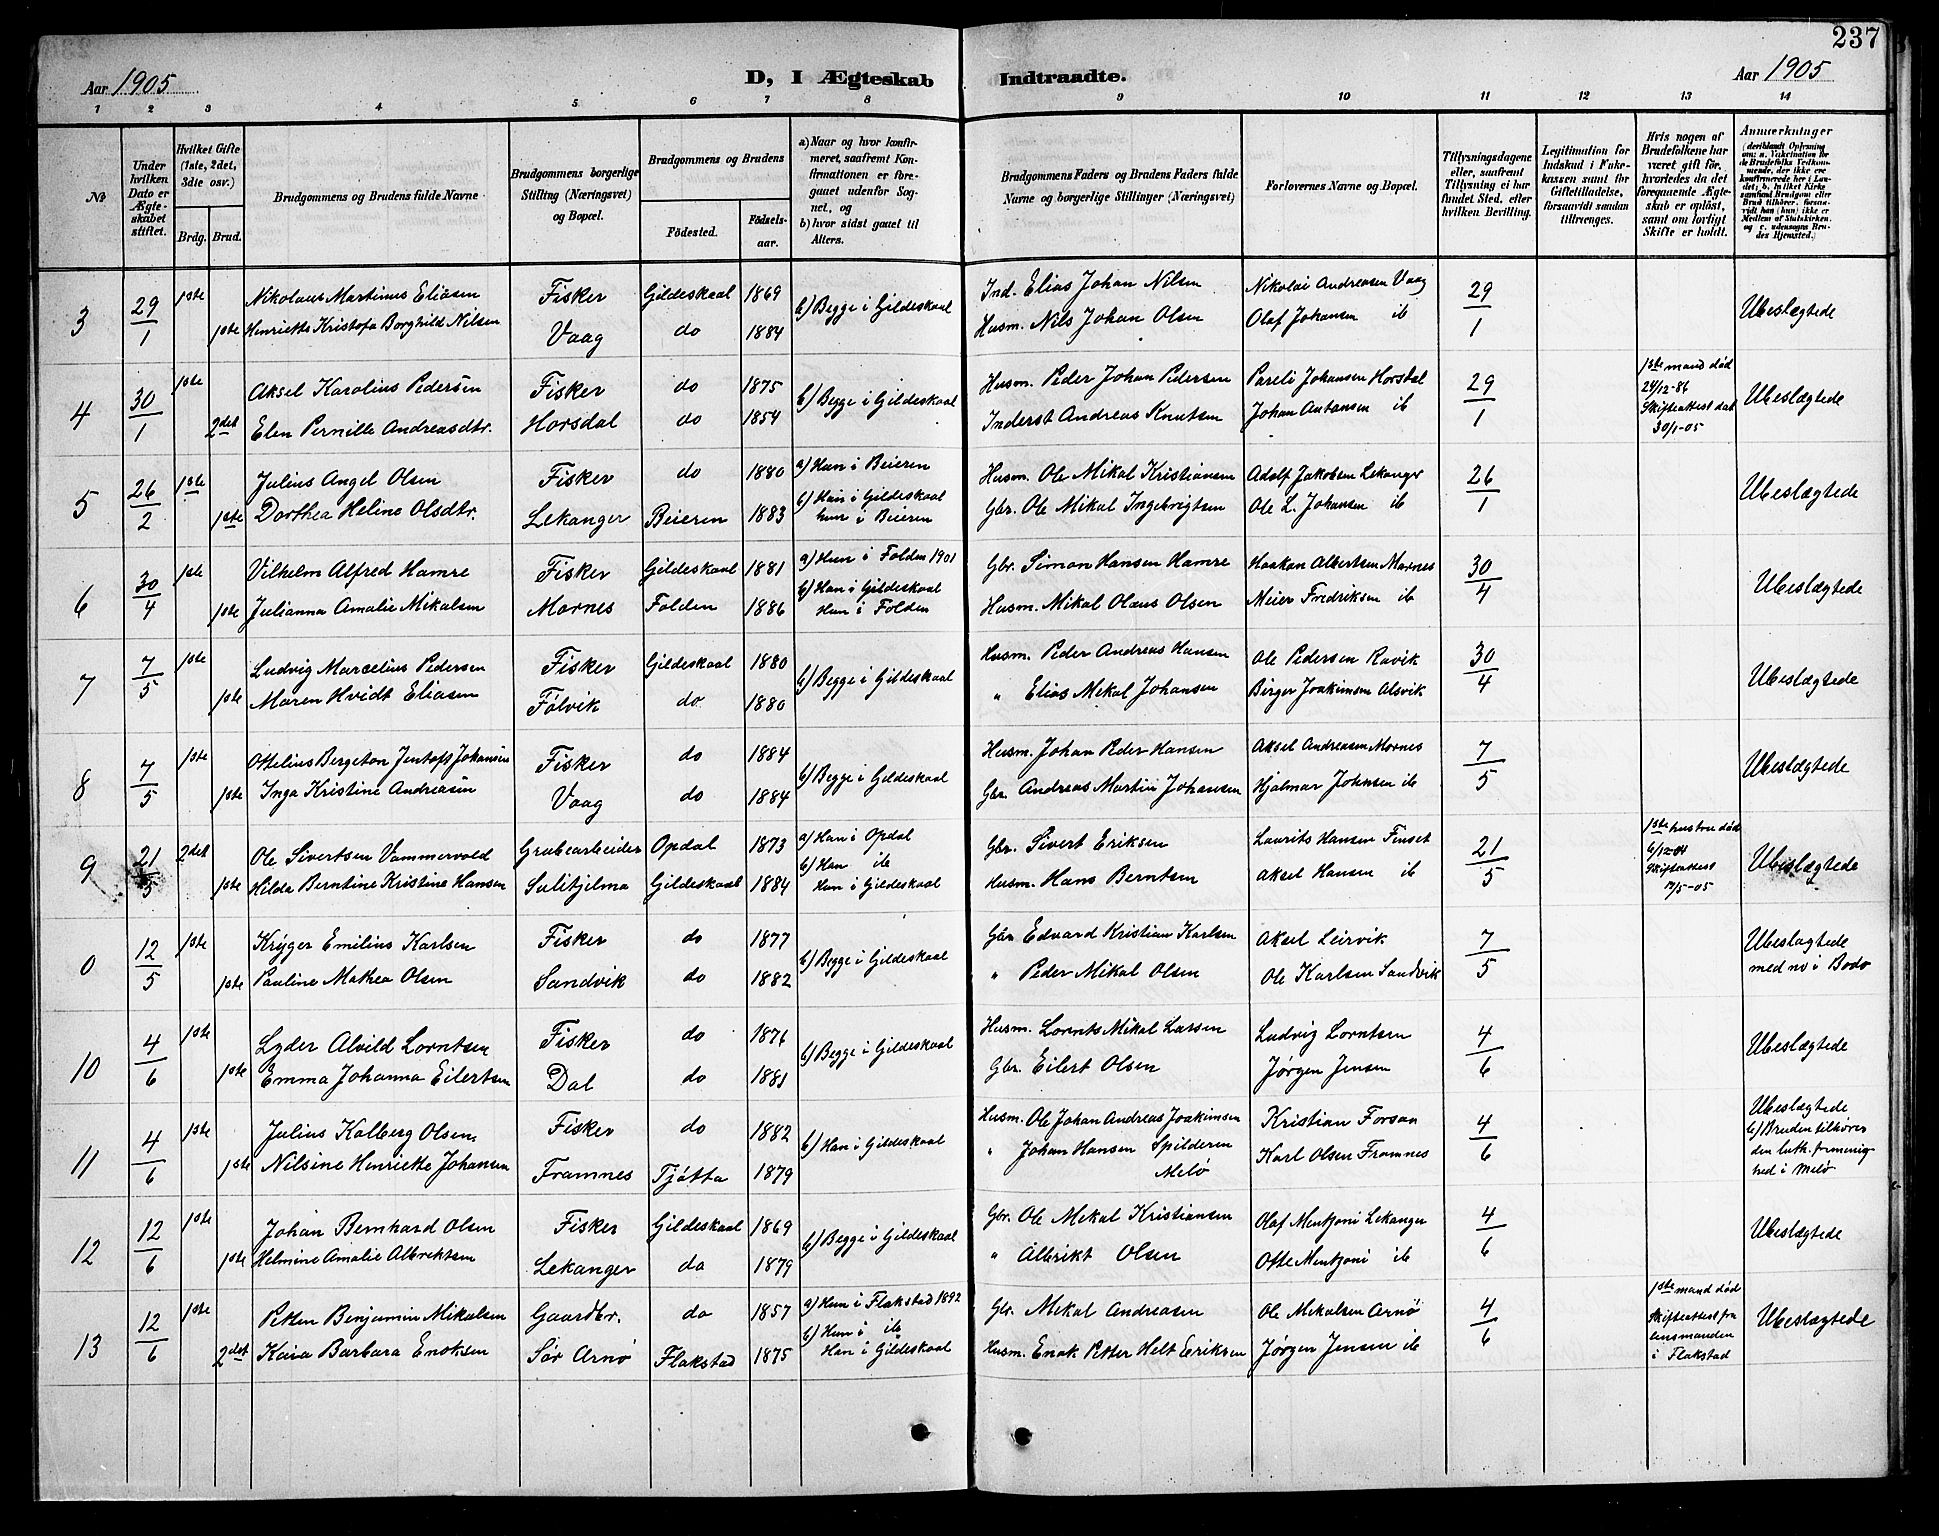 237
Aar 1905
D, I Ægteskab Indtraadte.
Aar 1905
1 2 3 4 5 6 7 8 9 10 11 12 13 14
№
Under hvilken Dato er Ægteskabet stiftet.
Hvilket Gifte (1ste, 2det, 3die osv.)
Brdg. Brud.
Brudgommens og Brudens fulde Navne
Brudgommens borgerlige Stilling (Næringsvei) og Bopæl.
Brudgommens og Brudens
Fødested. Fødselsaar.
a) Naar og hvor konfirmeret, saafremt Konfirmationen er foregaaet udenfor Sognet, og
b) hvor sidst gaaet til Alters.
Brudgommens Faders og Brudens Faders fulde Navne og borgerlige Stillinger (Næringsvei)
Forlovernes Navne og Bopæl.
Tillysningsdagene eller, saafremt Tillysning ei har fundet Sted, efter hvilken Bevilling.
Legitimation for Indskud i Enkekassen samt for Giftetilladelse, forsaavidt saadan tiltrænges.
Hvis nogen af Brudefolkene har været gift før, hvorledes da det foregaaende Ægteskab er opløst, samt om lovligt Skifte er holdt.
Anmerkninger (deriblandt Oplysning om: a. Vakcination for de Brudefolks Vedkommende, der ikke ere konfirmerede her i Landet; b. hvilket Kirkesamfund Brudgom eller Brud tilhører, forsavidt han (hun) ikke er Medlem af Statskirken, og c. udensogns Brudes Hjemsted.)
3 29/1 1ste Nikolaus Martinus Eliasen Fisker Gildeskaal 1869 b) Begge i Gildeskaal Ind. Elias Johan Nilsen Nikolai Andreasen Vaag 29/1 Ubeslægtede
1ste Henriette Kristofa Borghild Nilsen Vaag do 1884 Husm. Nils Johan Olsen Olaf Johansen ib
4 30/1 1ste Aksel Karolius Pedersen Fisker do 1875 b) Begge i Gildeskaal Husm. Peder Johan Pedersen Pareli Johansen Horsdal 29/1 1ste mand död 24/12-86 Skifteattest dat 30/1-05 Ubeslægtede
2det Elen Pernille Andreasdtr. Horsdal do 1854 Inderst Andreas Knutsen Johan Antonsen ib
5 26/2 1ste Julius Angel Olsen Fisker do 1880 a) Hun i Beieren Husm. Ole Mikal Kristiansen Adolf Jakobsen Lekanger 26/1 Ubeslægtede
1ste Dorthea Heline Olsdtr. Lekanger Beieren 1883 b) Han i Gildeskaal hun i Beieren Gbr. Ole Mikal Ingebrigtsen Ole L. Johansen ib
6 30/4 1ste Vilhelm Alfred Hamre Fisker Gildeskaal 1881 a) Hun i Folden 1901 Gbr. Simon Hansen Hamre Haakon Albertsen Marnes 30/4 Ubeslægtede
1ste Julianna Amalie Mikalsen Mornes Folden 1886 b) Han i Gildeskaal Hun i Folden Husm. Mikal Olaus Olsen Meier Fredriksen ib
7 7/5 1ste Ludvig Marcelius Pedersen Fisker Gildeskaal 1880 b) Begge i Gildeskaal Husm. Peder Andreas Hansen Ole Pedersen Ravik 30/4 Ubeslægtede
1ste Maren Hvidt Eliasen Følvik do 1880 " Elias Mikal Johansen Birger Joakimsen Alsvik
8 7/5 1ste Ottelius Bergeton Jentoft Johansen Fisker do 1884 b) Begge i Gildeskaal Husm. Johan Peder Hansen Aksel Andreasen Mornes 7/5 Ubeslægtede
1ste Inga Kristine Andreasen Vaag do 1884 Gbr. Andreas Martin Johansen Hjalmar Johnsen ib
9 21/5 2det Ole Sivertsen Vammervold Grubearbeider Opdal 1873 a) Han i Opdal Gbr. Sivert Eriksen Laurits Hansen Finset 21/5 1ste hustru død 6/12-04 Skifteattest 17/5-05 Ubeslægtede
1ste Hilda Berntine Kristine Hansen Sulitjelma Gildeskaal 1884 b) Han ib Hun i Gildeskaal Husm. Hans Berntsen Aksel Hansen ib
0 12/5 1ste Krÿger Emilius Karlsen Fisker do 1877 b) Begge i Gildeskaal Gbr Edvard Kristian Karlsen Aksel Leirvik 7/5 Ubeslagtede med no i Bodø
1ste Pauline Mathea Olsen Sandvik do 1882 " Peder Mikal Olsen Ole Karlsen Sandvik
10 4/6 1ste Lyder Alvild Lorntsen Fisker do 1876 b) Begge i Gildeskaal Husm. Lornts Mikal Larsen Ludvig Lorntsen 4/6 Ubeslægtede
1ste Emma Johanna Eilertsen Dal do 1881 Gbr. Eilert Olsen Jørgen Jensen
11 4/6 1ste Julius Kolberg Olsen Fisker do 1882 b) Han i Gildeskaal Husm. Ole Johan Andreas Joakimsen Kristian Forsaa 4/6 Ubeslægtede b) Bruden tilhører den luth. frimenighed i Melø
1ste Nilsine Henriette Johansen Framnes Tjøtta 1879 " Johan Hansen Spilderen Melø Karl Olsen Framnes
12 12/6 1ste Johan Bernhard Olsen Fisker Gildeskaal 1869 b) Begge i Gildeskaal Gbr. Ole Mikal Kristiansen Olaf Mentzoni Lekanger 4/6 Ubeslægtede
1ste Helmine Amalie Albriktsen Lekanger do 1879 " Albrikt Olsen Otto Mentzoni ib
13 12/6 1ste Petter Benjamin Mikalsen Gaardbr. do 1857 a) Hun i Flakstad 1892 Gbr. Mikal Andreasen Ole Mikalsen Arnø 4/6 1ste mand död Skifteattest fra lensmanden i Flakstad Ubeslægtede
2det Kaia Barbara Enoksen Sør Arnø Flakstad 1875 b) Hun i ib Han i Gildeskaal Husm. Enok Petter Helt Eriksen Jørgen Jensen ib